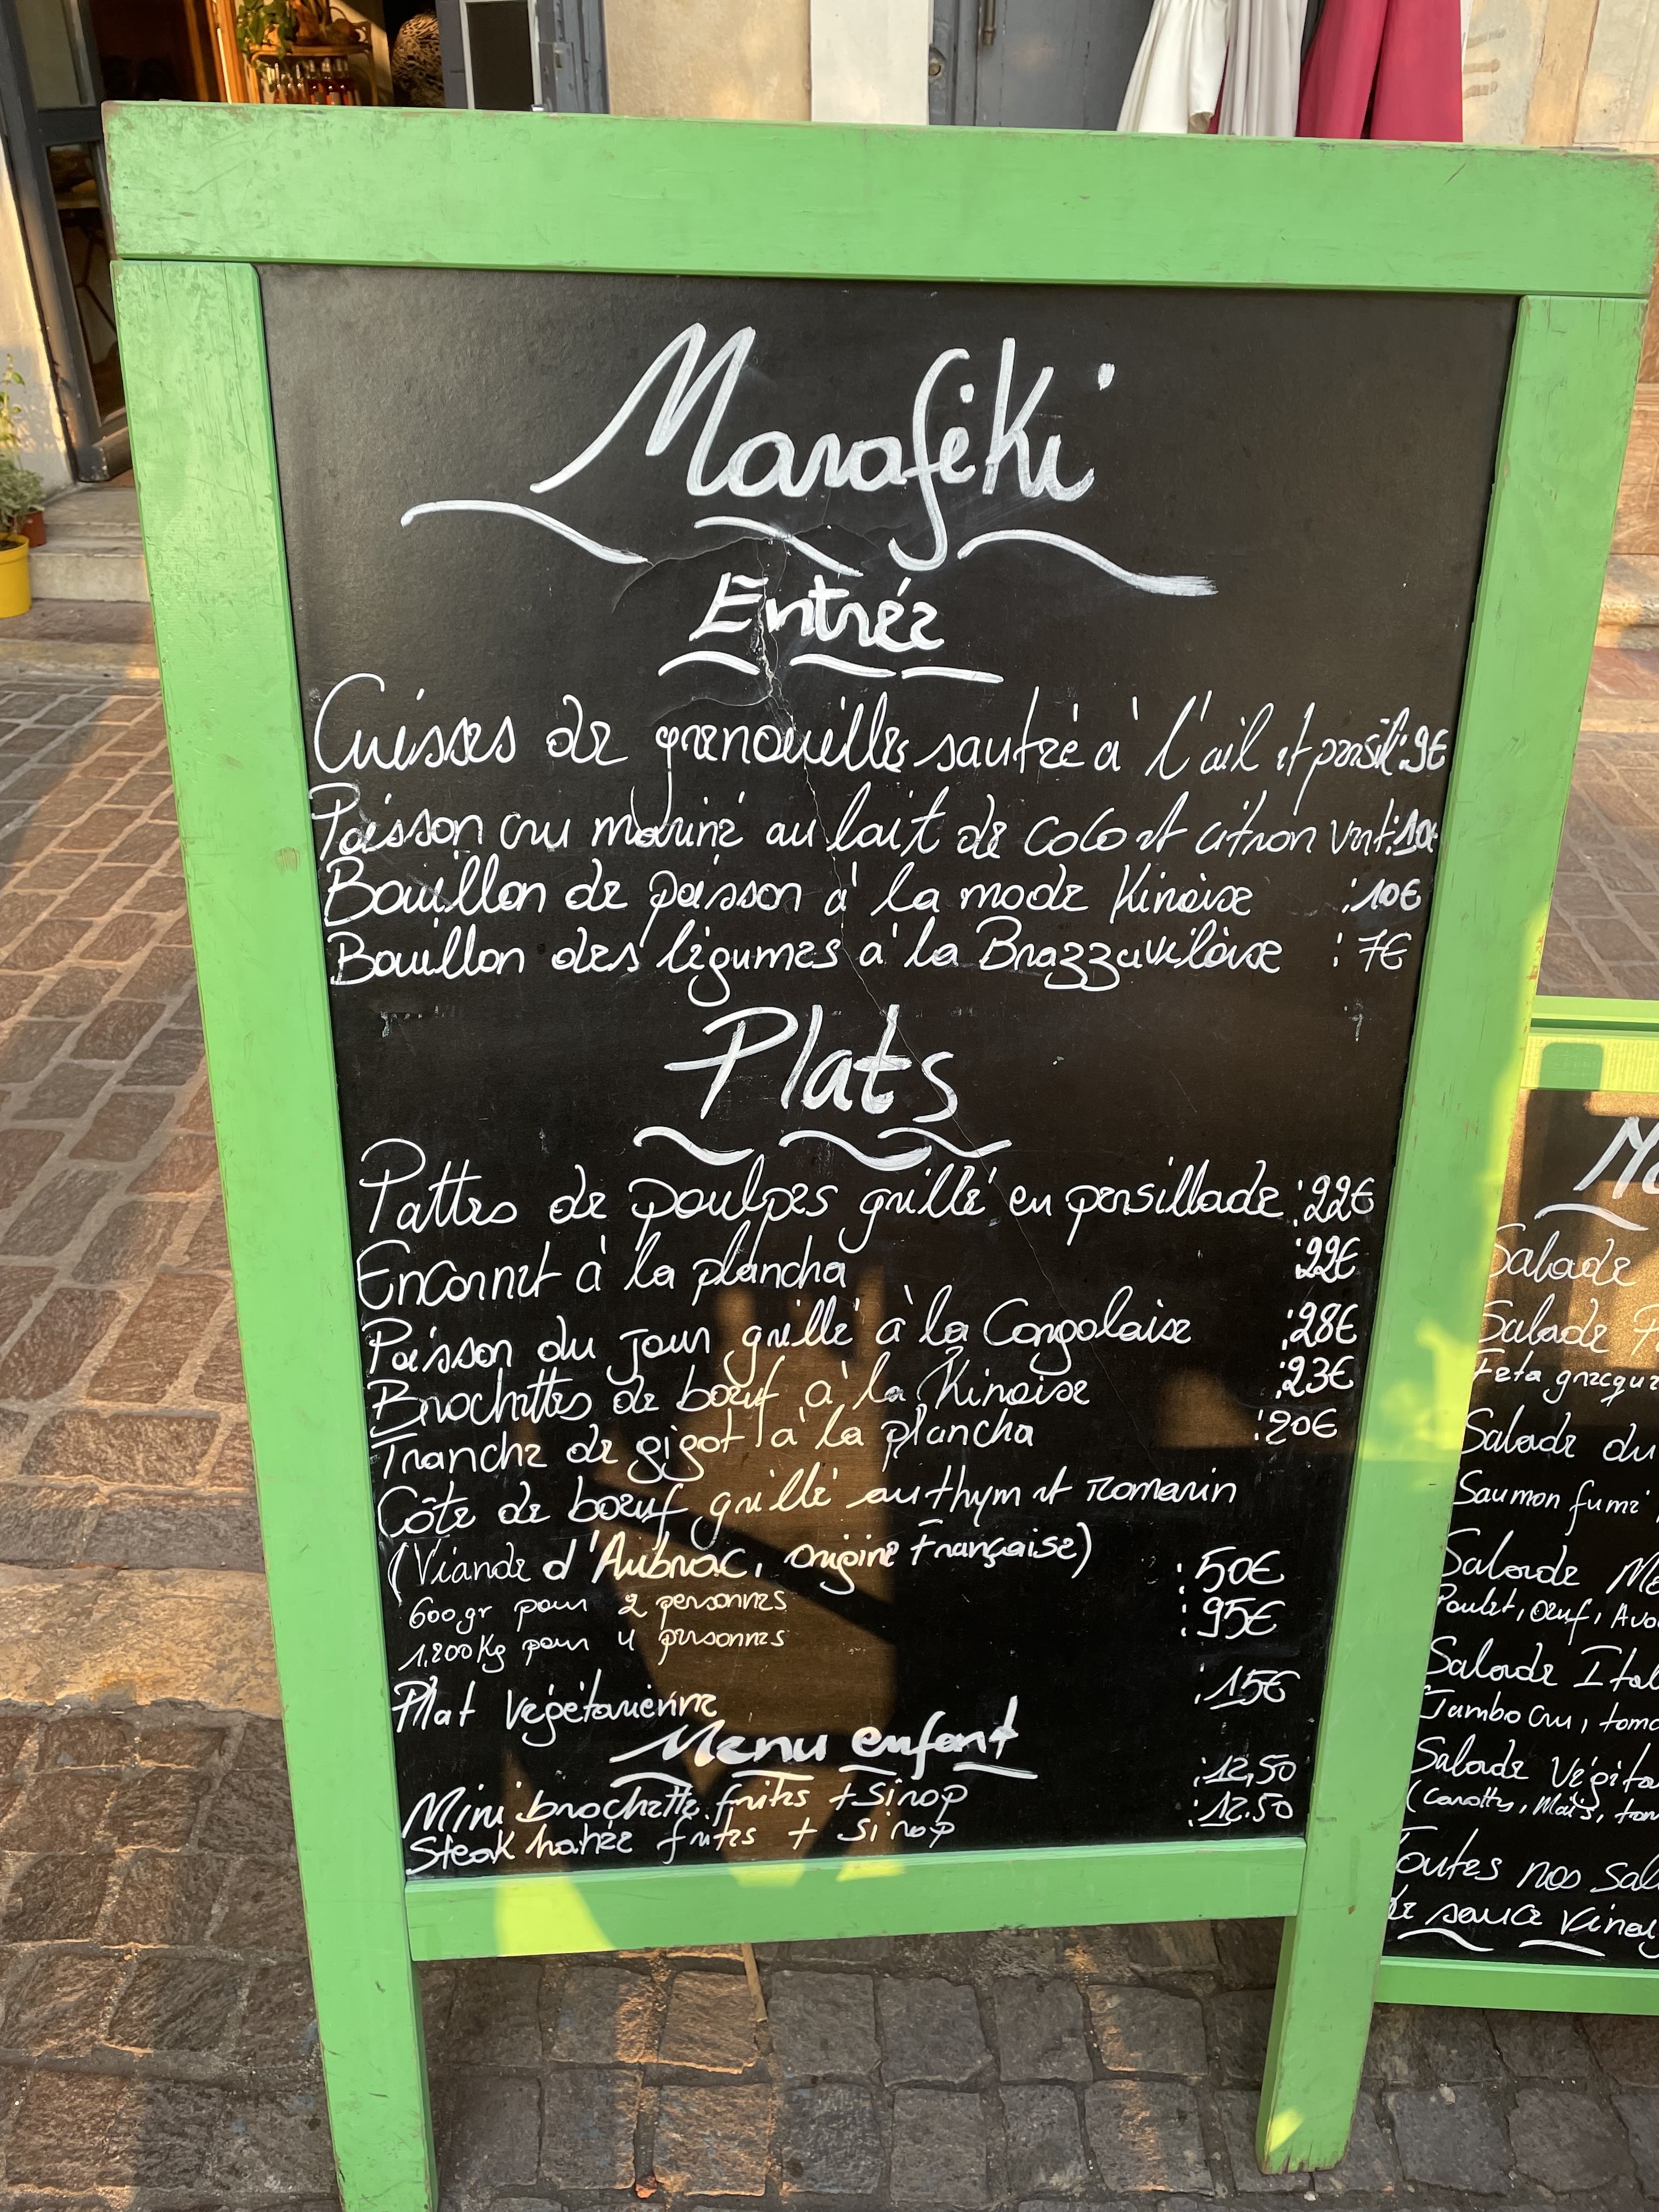 Marafiki
Entrée
Cuisses de grenouilles sautée à l'ail et persil :9€
Poisson cru mariné au lait de coco et citron vert :10€
Bouillon de poisson à la mode Kinoise :10€
Bouillon des légumes à la Brazzaviloise : 7€
Plats
Pattes de poulpes grillé en persillade :22€
Encornet à la plancha :22€
Poisson du jour grillé à la Congolaise :28€
Brochettes de bœuf à la Kinoise :23€
Tranche de gigot à la plancha :20€
Côte de bœuf grillé au thym et romarin
(Viande d'Aubrac, origine Française)
600gr pour 2 personnes :50€
1,200Kg pour 4 personnes :95€
Plat végétarienne :15€
Menu enfant
Mini brochette frites + sirop :12,50
Steak hachée frites + sirop :12.50
Salade
Salade
Feta grecque
Salade du
Saumon fumé,
Salade
Poulet, Œuf,
Salade
Jambo Cru,
Salade
(Carottes, Maïs,
Toutes nos
de sauce